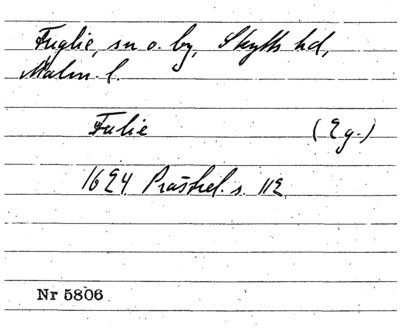 Fuglie, sn o. by, Skytts hd,
Malm. l.
Fulie (Eg.)
1624 Prästrel. s. 112
Nr 5806